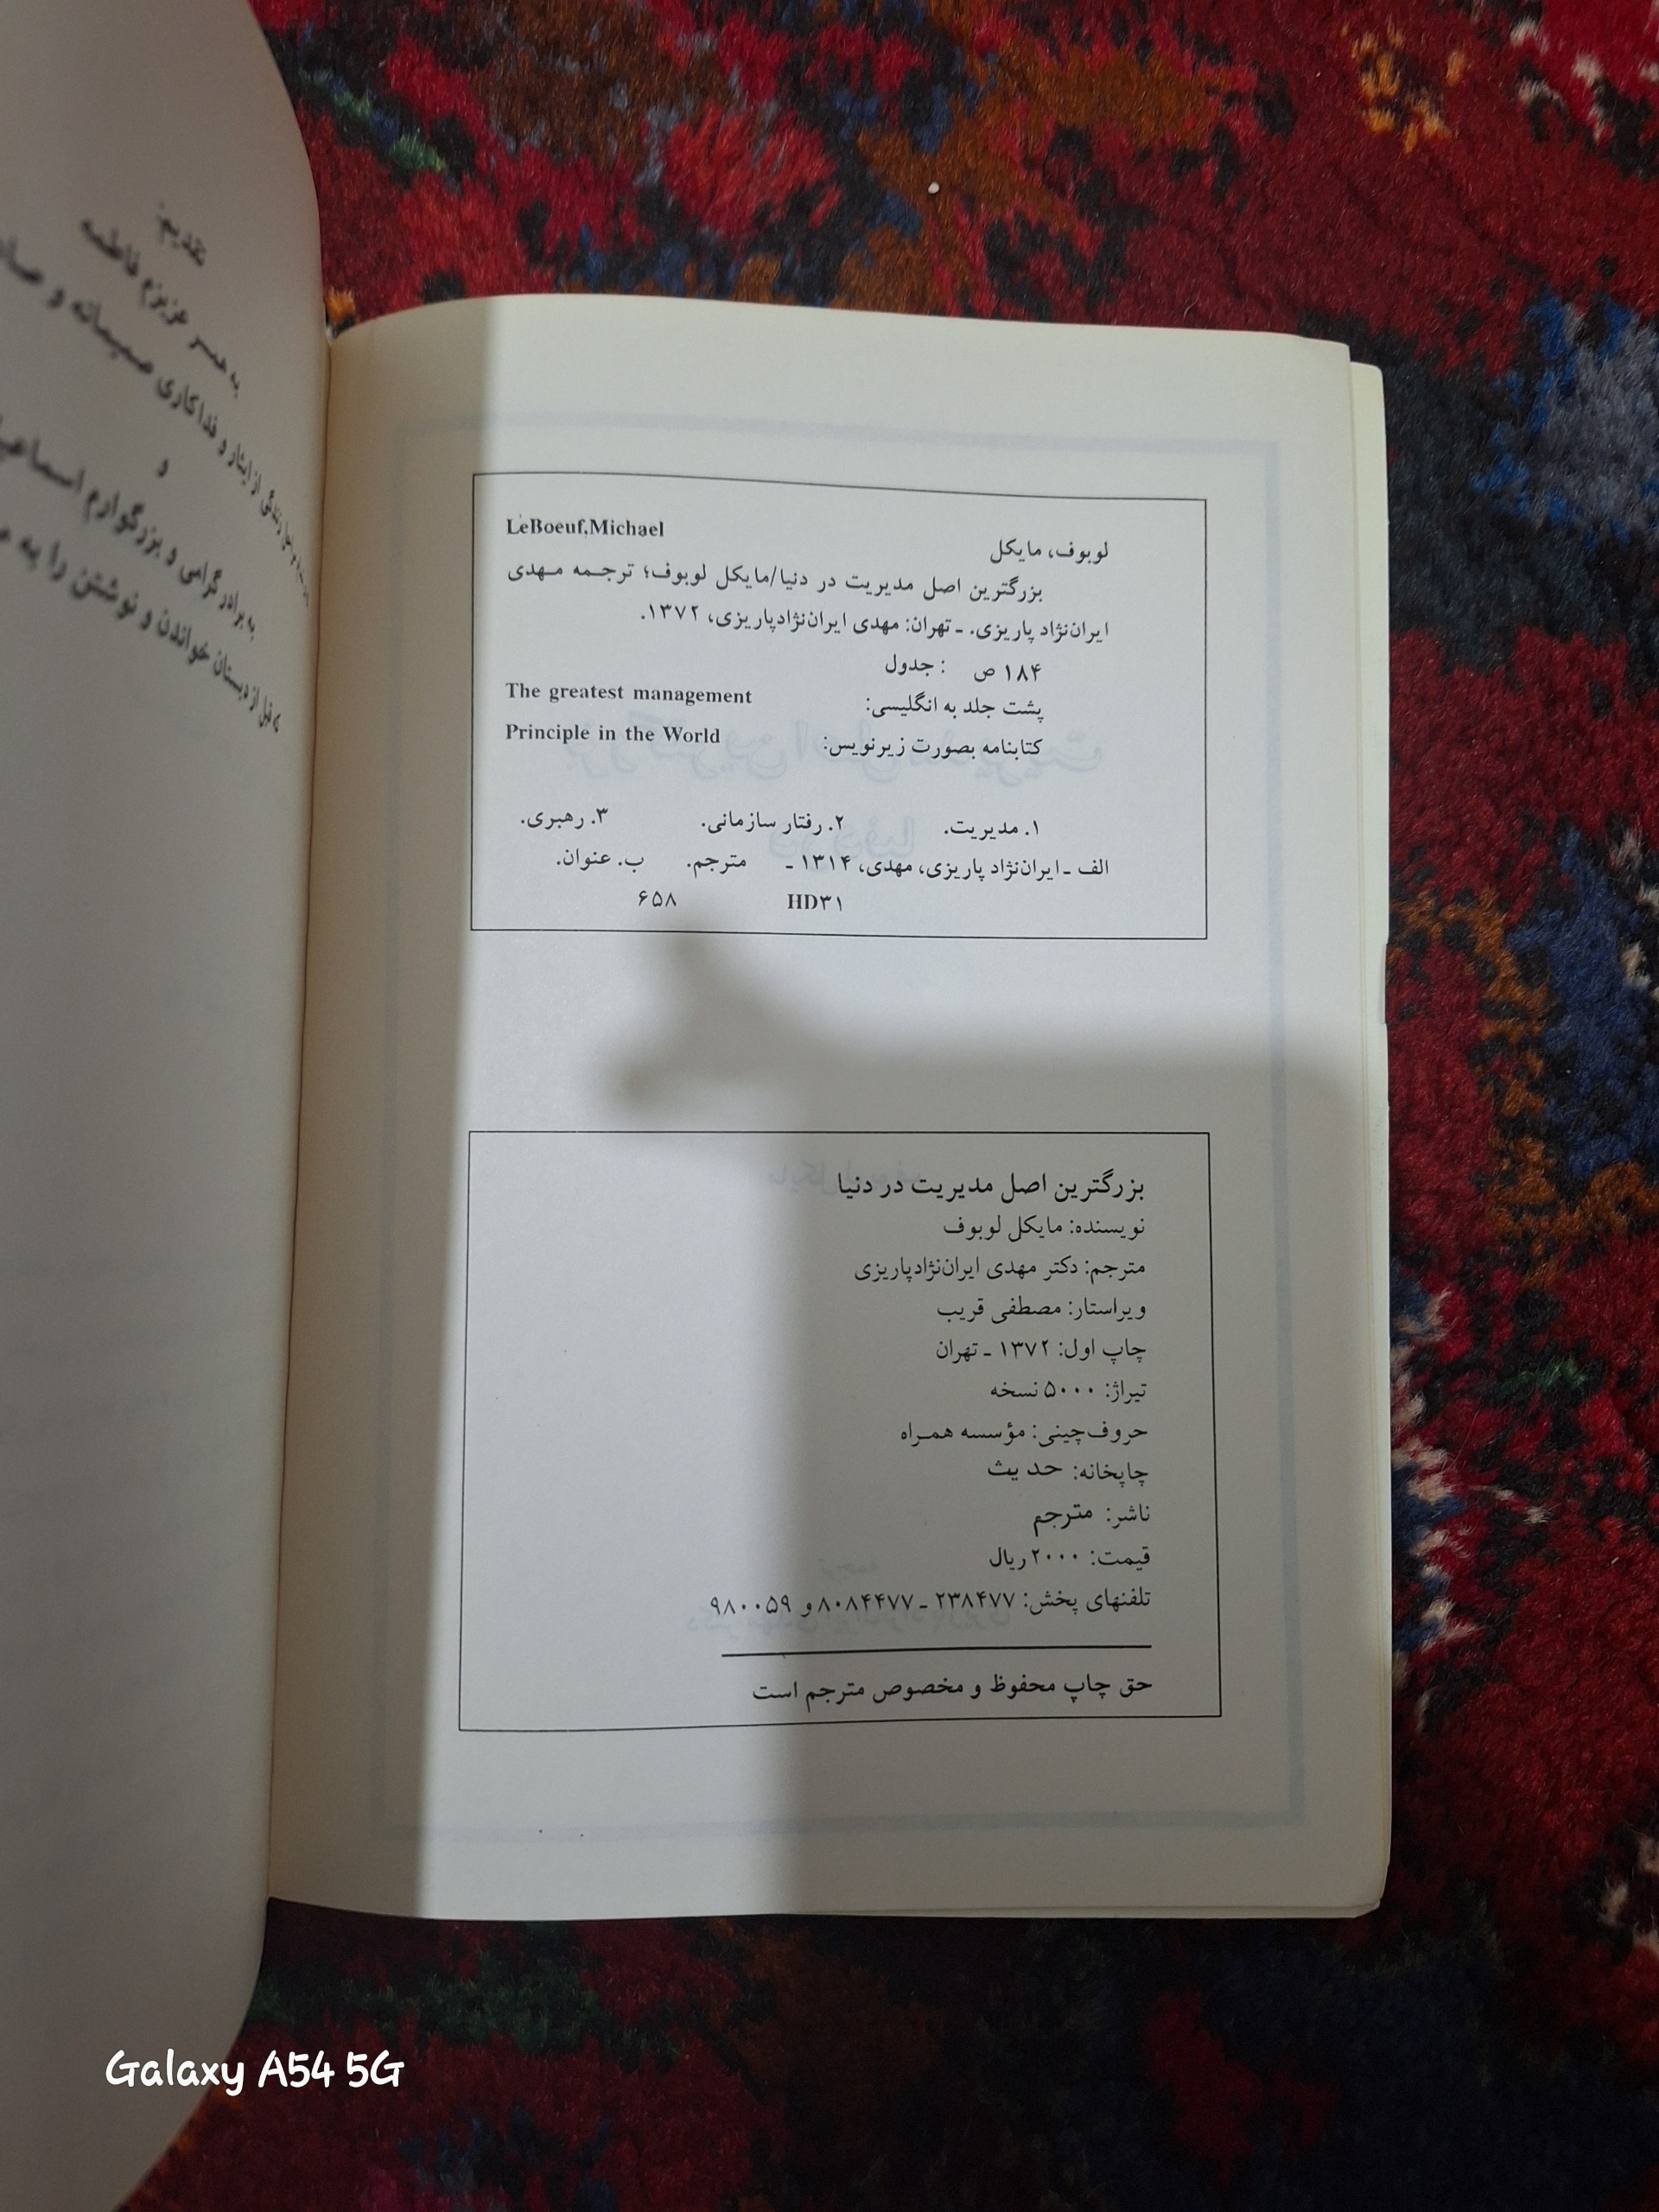 تقدیم:
به همسر عزیزم فاطمه
از ایثار و فداکاری صمیمانه و
و
به برادر گرامی و بزرگوارم
قبل از دبستان خواندن و نوشتن را به
LeBoeuf,Michael
لوبوف، مایکل
بزرگترین اصل مدیریت در دنیا/مایکل لوبوف؛ ترجمه مهدی
ایران‌نژاد پاریزی. ـ تهران: مهدی ایران‌نژادپاریزی، ۱۳۷۲.
۱۸۴ ص : جدول
پشت جلد به انگلیسی: The greatest management
کتابنامه بصورت زیرنویس: Principle in the World
۱. مدیریت. ۲. رفتار سازمانی. ۳. رهبری.
الف ـ ایران‌نژاد پاریزی، مهدی، ۱۳۱۴ ـ مترجم. ب. عنوان.
HD۳۱ ۶۵۸
بزرگترین اصل مدیریت در دنیا
نویسنده: مایکل لوبوف
مترجم: دکتر مهدی ایران‌نژادپاریزی
ویراستار: مصطفی قریب
چاپ اول: ۱۳۷۲ ـ تهران
تیراژ: ۵۰۰۰ نسخه
حروف‌چینی: مؤسسه همراه
چاپخانه: حدیث
ناشر: مترجم
قیمت: ۲۰۰۰ ریال
تلفنهای پخش: ۲۳۸۴۷۷ ـ ۸۰۸۴۴۷۷ و ۹۸۰۰۵۹
حق چاپ محفوظ و مخصوص مترجم است
Galaxy A54 5G